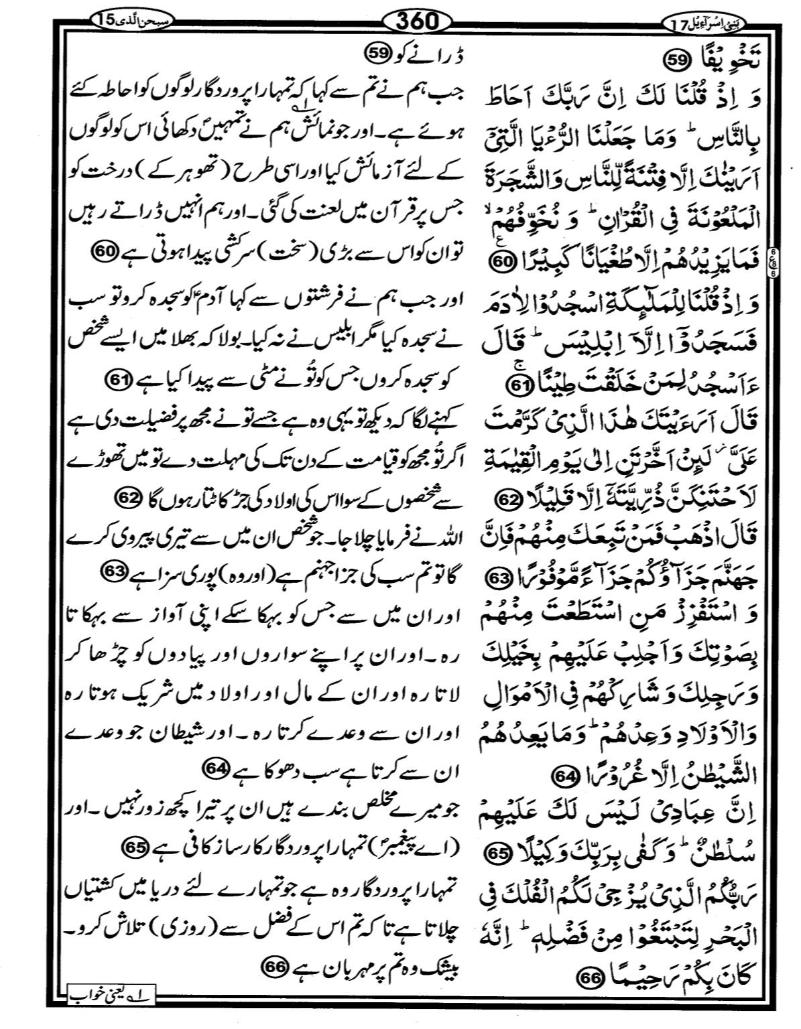 بَنِیْٓ اِسْرَآءِیْل 17
360
سبحٰن الّذی 15
تَخْوِیْفًا 59
وَ اِذْ قُلْنَا لَكَ اِنَّ رَبَّكَ اَحَاطَ
بِالنَّاسِ ؕ وَمَا جَعَلْنَا الرُّءْیَا الَّتِیْۤ
اَرَیْنٰكَ اِلَّا فِتْنَةً لِّلنَّاسِ وَالشَّجَرَةَ
الْمَلْعُوْنَةَ فِی الْقُرْاٰنِ ؕ وَ نُخَوِّفُهُمْ ۙ
فَمَا یَزِیْدُهُمْ اِلَّا طُغْیَانًا كَبِیْرًا 60 ع
وَ اِذْ قُلْنَا لِلْمَلٰٓىِٕكَةِ اسْجُدُوْا لِاٰدَمَ
فَسَجَدُوْۤا اِلَّاۤ اِبْلِیْسَ ؕ قَالَ
ءَاَسْجُدُ لِمَنْ خَلَقْتَ طِیْنًا 61 ۚ
قَالَ اَرَءَیْتَكَ هٰذَا الَّذِیْ كَرَّمْتَ
عَلَیَّ ؗ لَىِٕنْ اَخَّرْتَنِ اِلٰی یَوْمِ الْقِیٰمَةِ
لَاَحْتَنِكَنَّ ذُرِّیَّتَهٗۤ اِلَّا قَلِیْلًا 62
قَالَ اذْهَبْ فَمَنْ تَبِعَكَ مِنْهُمْ فَاِنَّ
جَهَنَّمَ جَزَآؤُكُمْ جَزَآءً مَّوْفُوْرًا 63
وَ اسْتَفْزِزْ مَنِ اسْتَطَعْتَ مِنْهُمْ
بِصَوْتِكَ وَ اَجْلِبْ عَلَیْهِمْ بِخَیْلِكَ
وَ رَجِلِكَ وَ شَارِكْهُمْ فِی الْاَمْوَالِ
وَالْاَوْلَادِ وَعِدْهُمْ ؕ وَ مَا یَعِدُهُمُ
الشَّیْطٰنُ اِلَّا غُرُوْرًا 64
اِنَّ عِبَادِیْ لَیْسَ لَكَ عَلَیْهِمْ
سُلْطٰنٌ ؕ وَ كَفٰی بِرَبِّكَ وَكِیْلًا 65
رَبُّكُمُ الَّذِیْ یُزْجِیْ لَكُمُ الْفُلْكَ فِی
الْبَحْرِ لِتَبْتَغُوْا مِنْ فَضْلِهٖ ؕ اِنَّهٗ
كَانَ بِكُمْ رَحِیْمًا 66
ڈرانے کو 59
جب ہم نے تم سے کہا کہ تمہارا پروردگار لوگوں کو احاطہ کئے
ہوئے ہے۔ اور جو نمائش ۱؎ ہم نے تمہیں دکھائی اس کو لوگوں
کے لئے آزمائش کیا اور اسی طرح (تھوہر کے) درخت کو
جس پر قرآن میں لعنت کی گئی۔ اور ہم انہیں ڈراتے رہیں
تو ان کو اس سے بڑی (سخت) سرکشی پیدا ہوتی ہے 60
اور جب ہم نے فرشتوں سے کہا آدمؑ کو سجدہ کرو تو سب
نے سجدہ کیا مگر ابلیس نے نہ کیا۔ بولا کہ بھلا میں ایسے شخص
کو سجدہ کروں جس کو تُو نے مٹی سے پیدا کیا ہے 61
کہنے لگا کہ دیکھ تو یہی وہ ہے جسے تو نے مجھ پر فضیلت دی ہے
اگر تُو مجھ کو قیامت کے دن تک کی مہلت دے تو میں تھوڑے
سے شخصوں کے سوا اس کی اولاد کی جڑ کاٹتا رہوں گا 62
اللہ نے فرمایا چلا جا۔ جو شخص ان میں سے تیری پیروی کرے
گا تو تم سب کی جزا جہنم ہے (اور وہ) پوری سزا ہے 63
اور ان میں سے جس کو بہکا سکے اپنی آواز سے بہکاتا
رہ۔ اور ان پر اپنے سواروں اور پیادوں کو چڑھا کر
لاتا رہ اور ان کے مال اور اولاد میں شریک ہوتا رہ
اور ان سے وعدے کرتا رہ۔ اور شیطان جو وعدے
ان سے کرتا ہے سب دھوکا ہے 64
جو میرے مخلص بندے ہیں ان پر تیرا کچھ زور نہیں۔ اور
(اے پیغمبرؐ) تمہارا پروردگار کارساز کافی ہے 65
تمہارا پروردگار وہ ہے جو تمہارے لئے دریا میں کشتیاں
چلاتا ہے تاکہ تم اس کے فضل سے (روزی) تلاش کرو۔
بیشک وہ تم پر مہربان ہے 66
۱؎ یعنی خواب